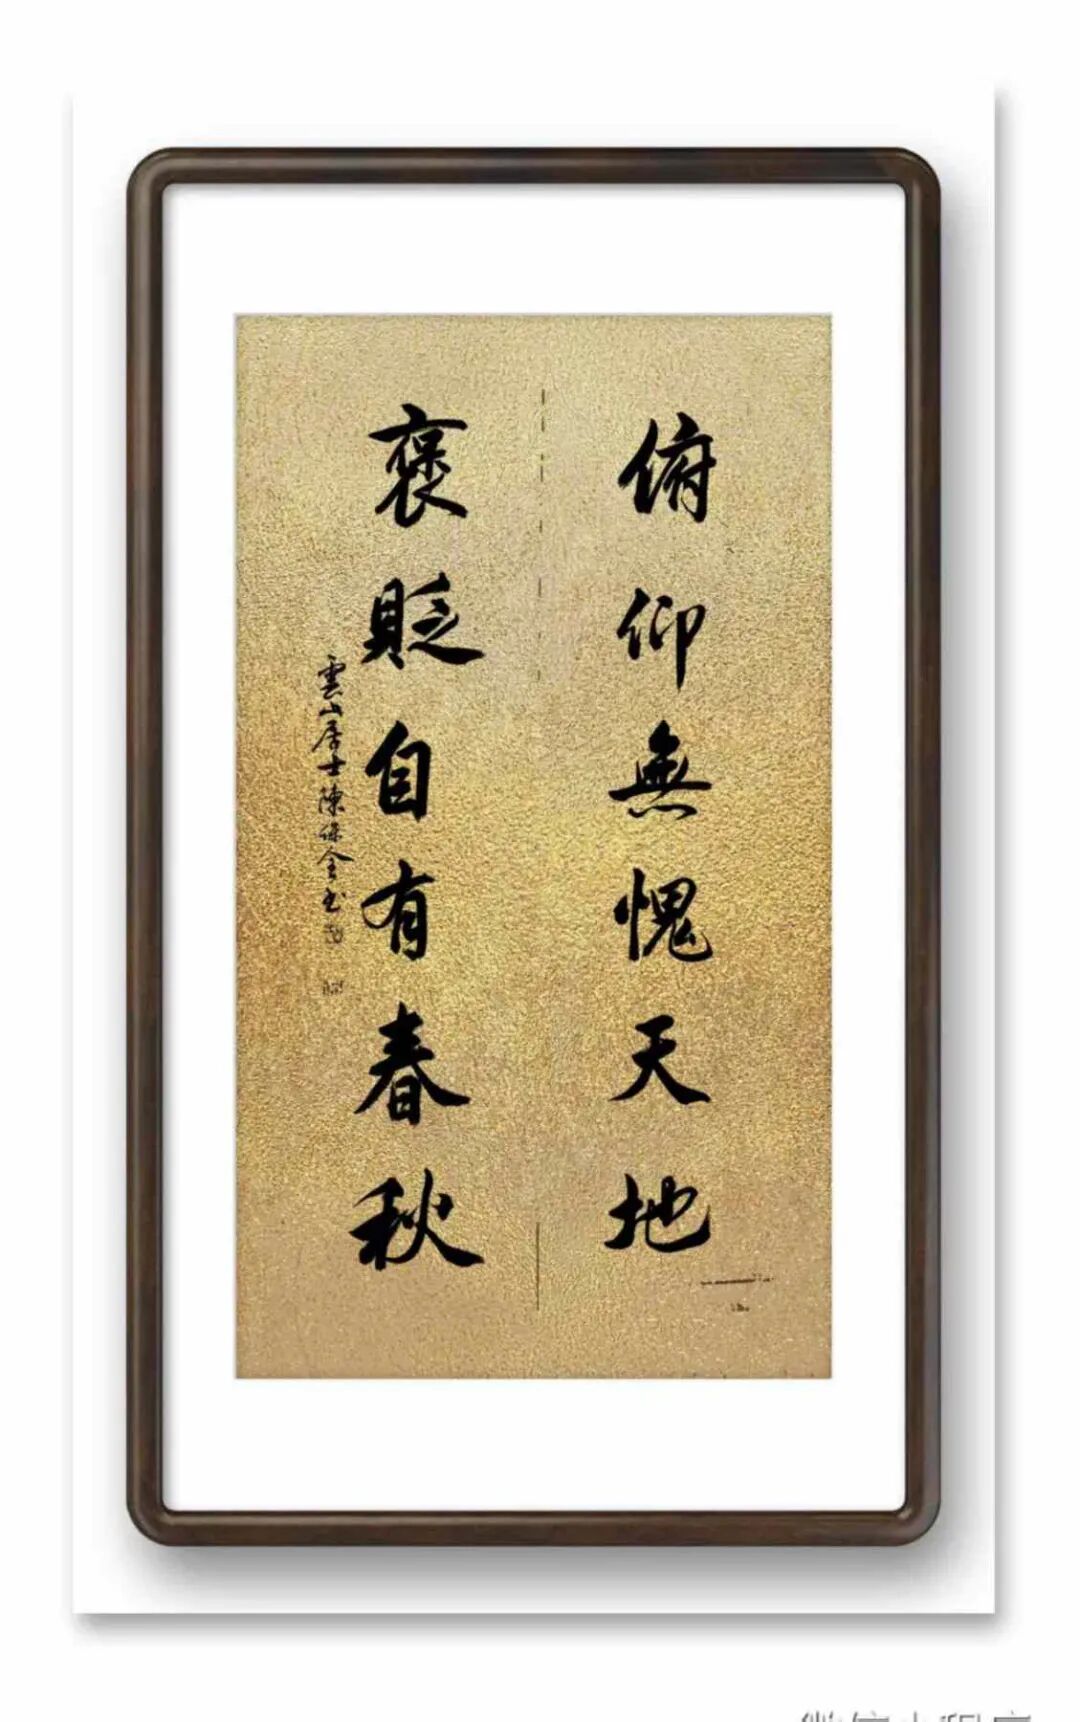 俯仰無愧天地
褒貶自有春秋
雲山居士陳保全书
微信小程序